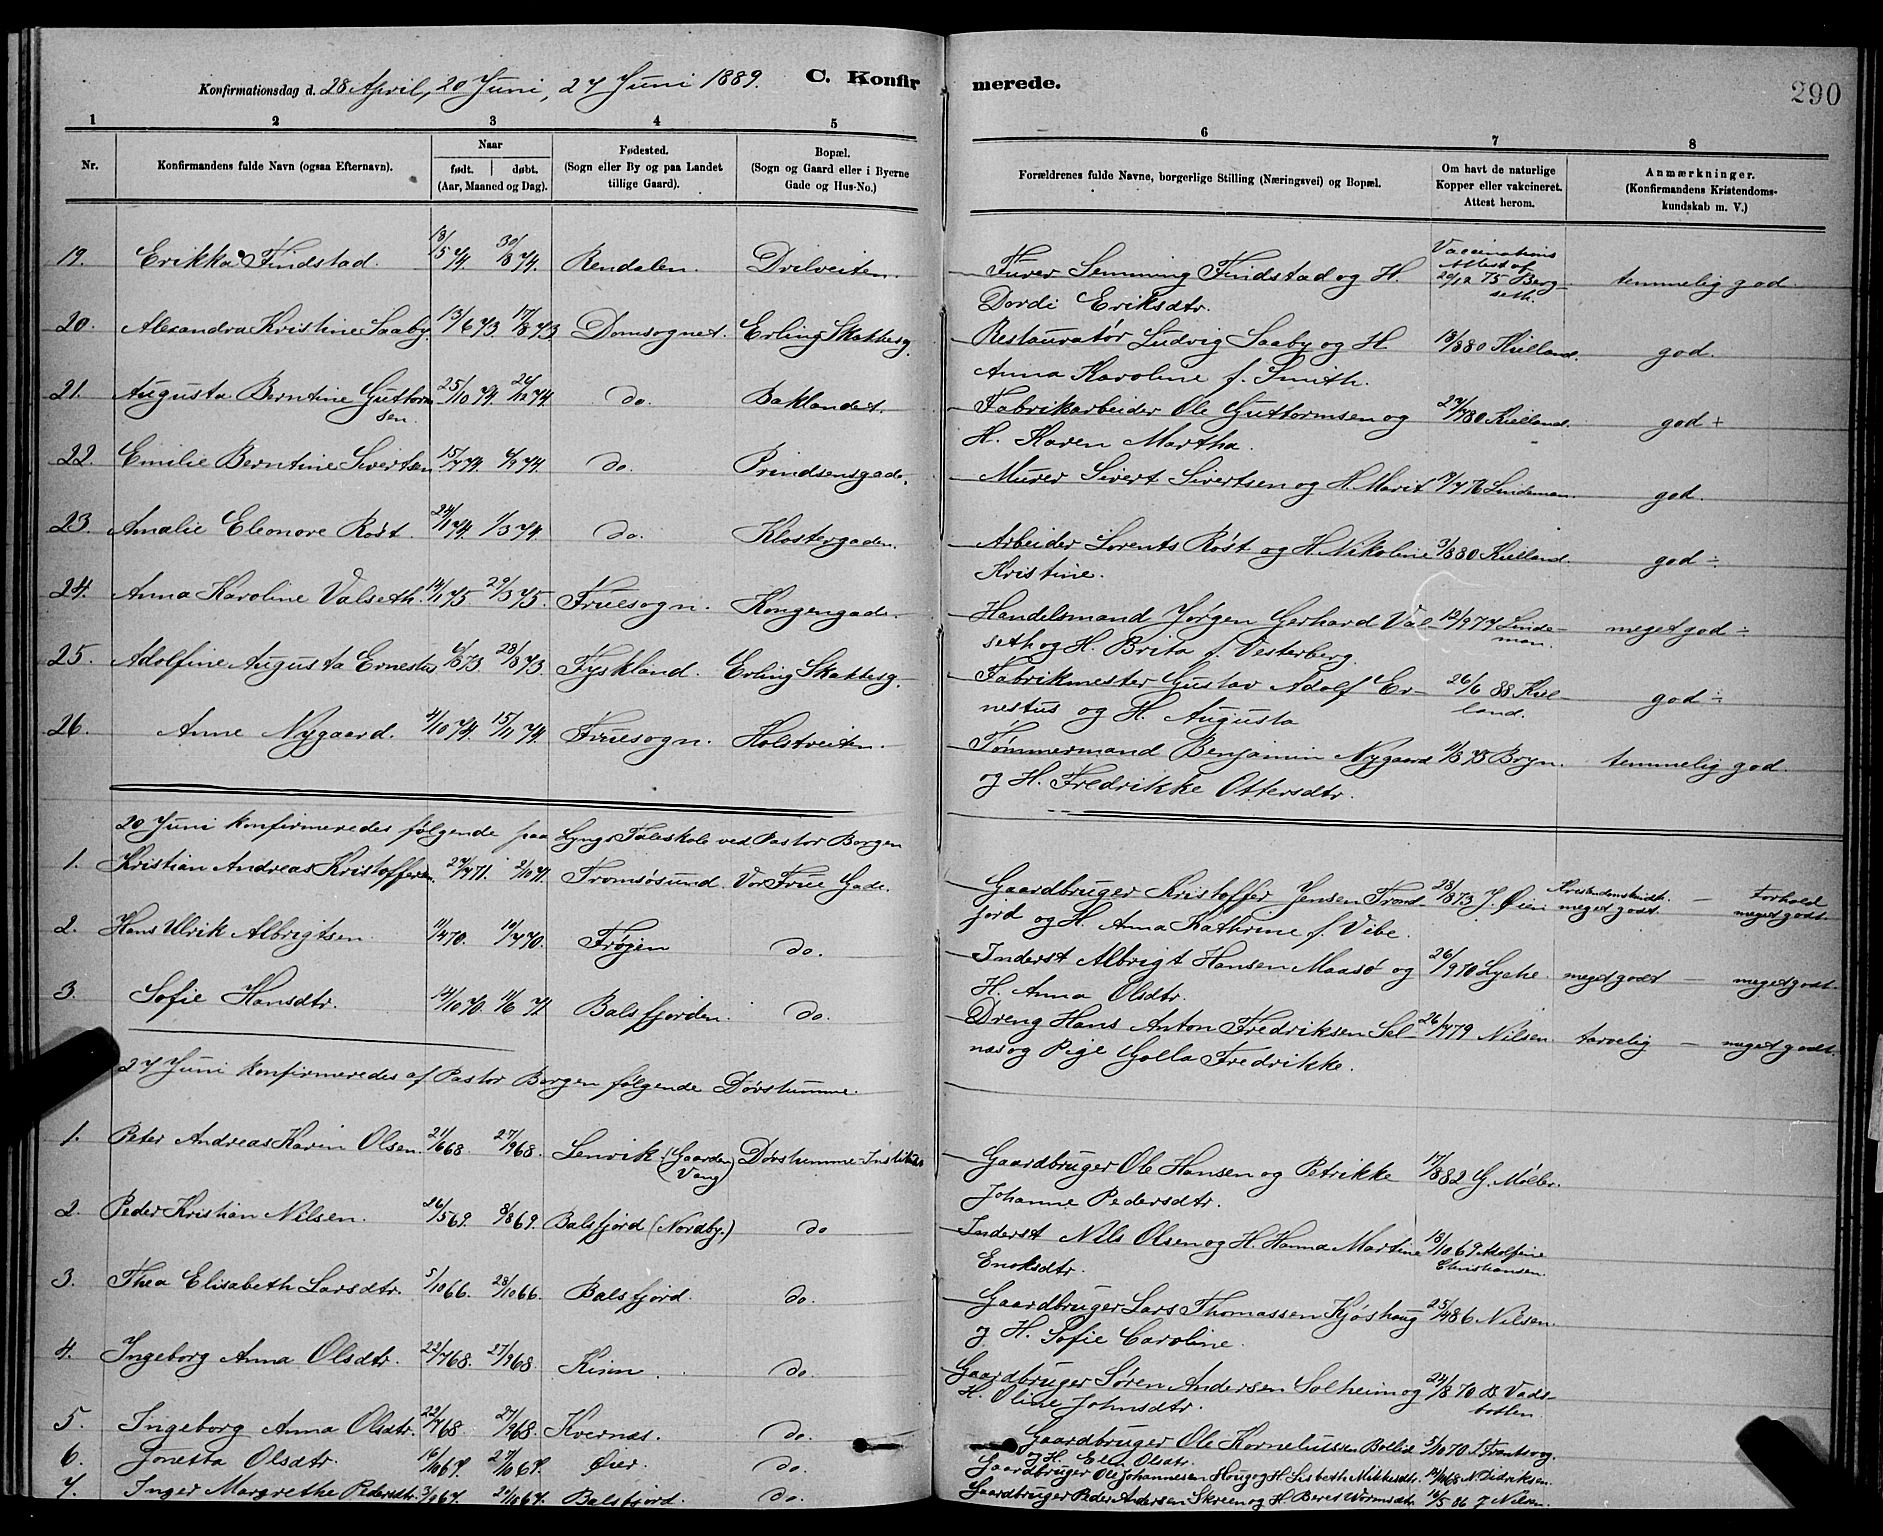 Konfirmationsdag d. 28 April, 20 Juni, 27 Juni 1889. C. Konfirmerede. 290
1 2 3 4 5 6 7 8
Nr. Konfirmandens fulde Navn (ogsaa Efternavn). Naar født. døbt. (Aar, Maaned og Dag). Fødested. (Sogn eller By og paa Landet tillige Gaard). Bopæl. (Sogn og Gaard eller i Byerne Gade og Hus-No.) Forældrenes fulde Navne, borgerlige Stilling (Næringsvei) og Bopæl. Om havt de naturlige Kopper eller vakcineret. Attest herom. Anmærkninger. (Konfirmandens Kristendomskundskab m. V.)
19. Erikka Findstad. 18/5 74. 30/8 74. Rendalen. Drilveiten. Furer Semming Findstad og H. Dordi Eriksdtr. Vaccinations Attest af 20/12 75 Bergseth. temmelig god.
20. Alexandra Kristine Saaby. 13/6 73. 17/8 73. Domsognet. Erling Skakkesg. Restauratør Ludvig Saaby og H. Anna Karoline f. Smith. 18/8 80 Kielland. god.
21. Augusta Berntine Guttormsen. 25/10 74. 26/12 74. do. Baklandet. Fabrikarbeider Ole Guttormsen og H. Karen Martha. 27/7 80 Kielland. god +
22. Emilie Berntine Sivertsen 15/7 74. 74. do. Prindsensgade. Murer Sivert Sivertsen og H. Marit 76 Lindeman. god.
23. Amalie Eleonore Røst. 24/1 74. 1/3 74. do. Klostergaden. Arbeider Lorents Røst og H Nikoline Kristine. 3/8 80 Kielland. god ÷
24. Anna Karoline Valseth. 14/1 75. 29/3 75. Fruesogn. Kongensgade. Handelsmand Jørgen Gerhard Valseth og H. Brita f. Vesterberg. 12/9 77 Lindeman. meget god ÷
25. Adolfine Augusta Ernestus 6/8 73. 28/8 73. Tyskland. Erling Skakkesg. Fabrikmester Gustav Adolf Ernestus og H. Augusta 26/6 88 Kielland. god ÷
26. Anne Nygaard. 4/10 74. 15/11 74. Fruesogn. Holstveiten. Tømmermand Benjamin Nygaard og H. Fredrikke Ottersdtr. 11/8 75 Bryn. temmelig god.
20 Juni konfirmeredes følgende paa Lyngs Taleskole ved Pastor Borgen
1. Kristian Andreas Kristoffersen. 27/7 71. 2/10 71. Tromsøsund. Vor Frue Gade. Gaardbruger Kristoffer Jensen Trondjord og H. Anna Kathrine f. Vibe. 28/8 73 J. Øien Kristendomskundsk. meget godt. — Forhold meget godt
2. Hans Ulrik Albrigtsen. 11/4 70. 10/7 70. Frøjen do. Inderst Albrigt Hansen Maasø og H. Anna Olsdtr. 26/9 70 Lyche. meget godt — meget godt.
3. Sofie Hansdtr. 14/10 70. 11/6 71 Balsfjorden. do. Dreng Hans Anton Fredriksen Selnæs og Pige Golla Fredrikke. 26/7 79 Nilsen tarvelig — meget godt.
27 Juni konfirmeredes af Pastor Borgen følgende Døvstumme.
1. Peter Andreas Karin Olsen. 21/6 68. 27/9 68. Lenvik (Gaarden Vang) Døvstumme-Institutet Gaardbruger Ole Hansen og Petrikke Johanne Pedersdtr. 17/8 82 G. Møller.
2. Peder Kristian Nilsen. 26/5 69. 8/8 69. Balsfjord (Nordby.) do Inderst Nils Olsen og H. Hanna Martine Enoksdtr. 18/10 69 Adolfine Christiansen.
3. Thea Elisabeth Larsdtr. 5/10 66. 28/10 66. Balsfjord. do. Gaardbruger Lars Thomassen Kjøshaug og H. Sofie Caroline. 25/4 86 Nilsen.
4. Ingeborg Anna Olsdtr. 22/7 68. 27/9 68. Kinn. do. Gaardbruger Søren Andersen Solheim og H. Oline Johnsdtr. 24/8 70 B. Vadsbotten.
5. Ingeborg Anna Olsdtr. 22/7 68. 27/9 68. Kvernæs. do. Gaardbruger Ole Korneliussen Bollie og H. Elen Olsdtr. 5/10 70
6. Jonetta Olsdtr. 16/10 67. 27/10 67. Øier. do. Gaardbruger Ole Johannesen Haug og H. Lisbeth Mikkelsdtr. 68 N. Didriksen.
7. Inger Margrethe Pedersdtr. 3/10 67. 27/10 67. Balsfjord. do. Gaardbruger Peder Andersen Skreen og H. Beret Wormsdtr. 16/5 86 J. Nilsen.